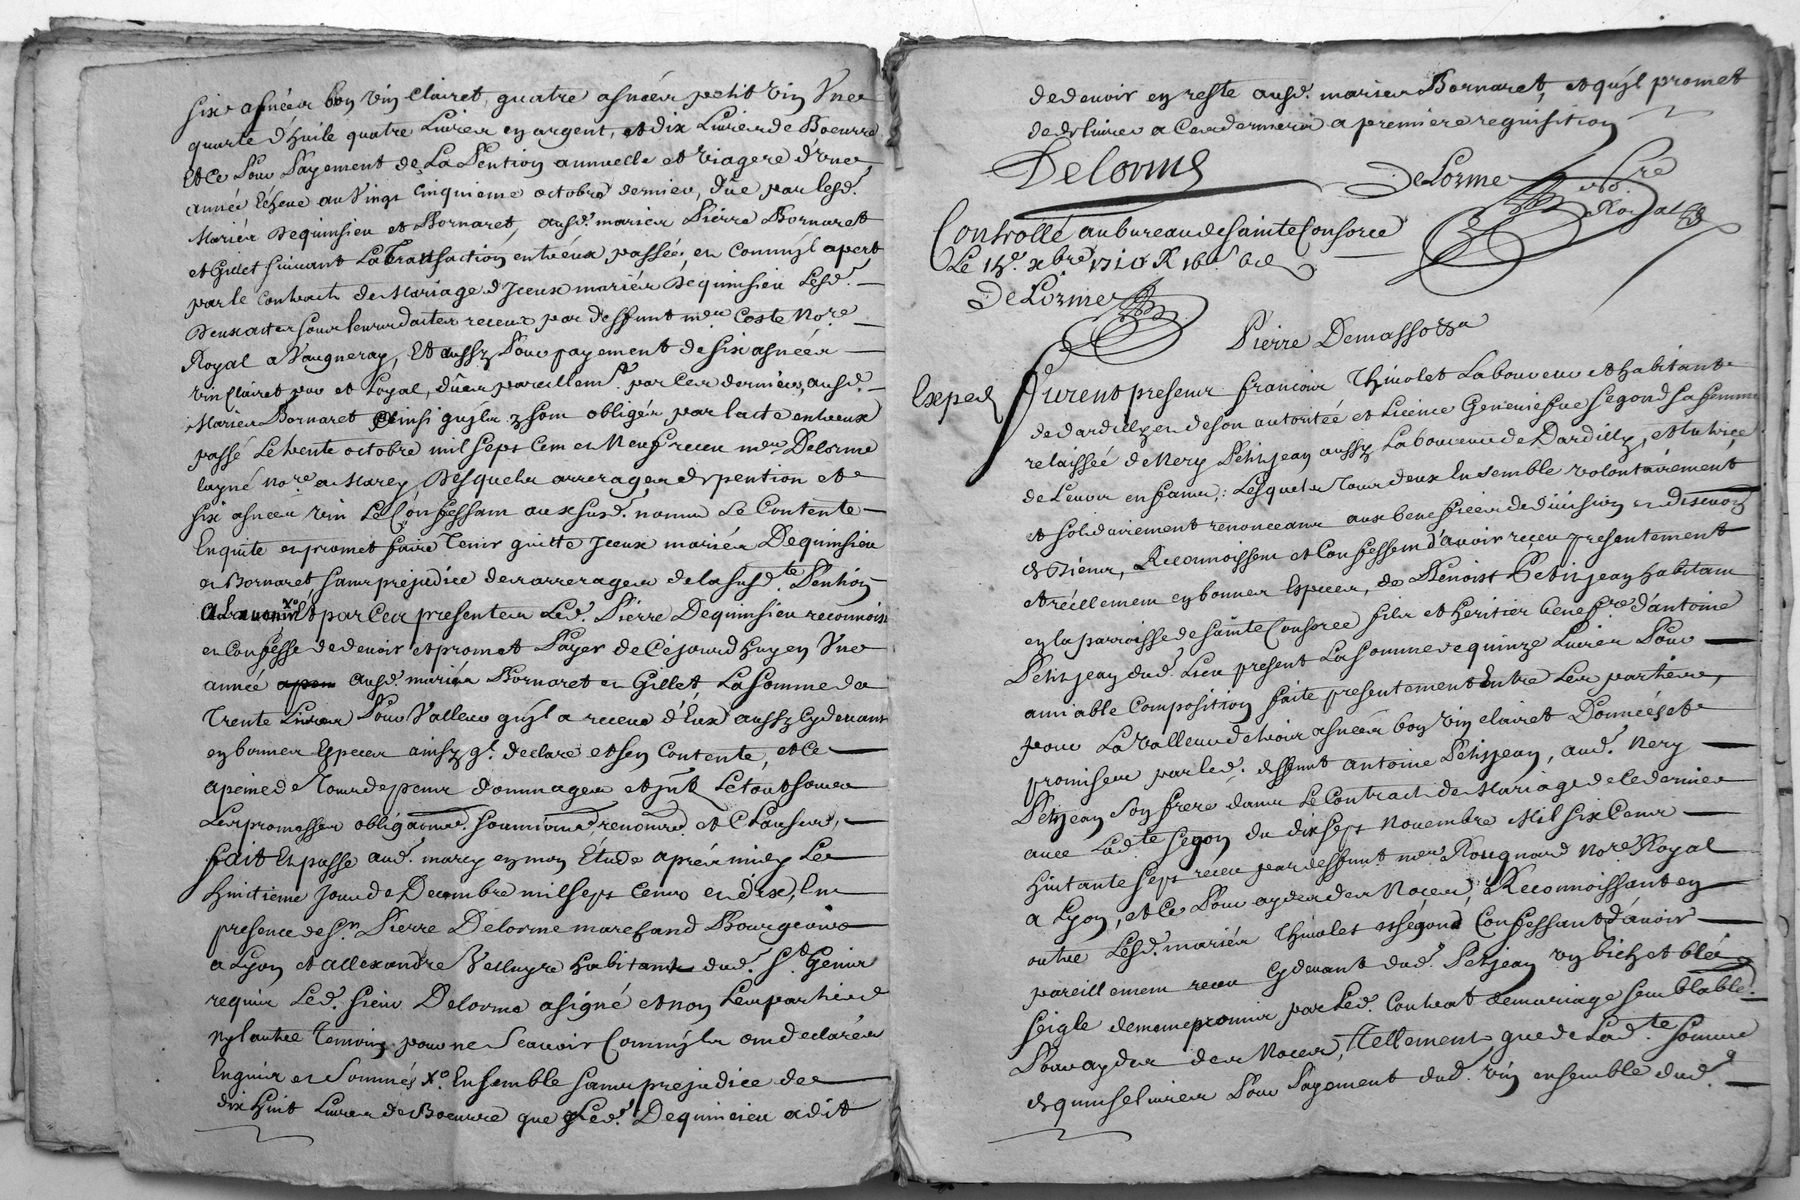 six asnées bon vin Clairet, quatre asnées petit vin Une
quarte d'huile quatre Livres en argent, et dix Livres de Boeurre
Et Ce Pour Payement de La Pention annuelle et viagere d'une
année Echeue au Vingt Cinquieme octobre dernier, düe par lesd.
Mariés Dequinsieu et Bornaret, ausd. mariés Pierre Bornaret
et Gillet suivant La Transaction entreux passée, et Comm'il apert
par le Contract de Mariage d'Iceux mariés Dequinsieu Lesd.
Deux actes sous leurs dattes receus par deffunt me. Coste No.re
Royal a Vaugneray, Et aussy Pour payement de six asnées
vin Clairet pur et Loyal, dües pareillem.t par Ces derniers, ausd.
Mariés Bornaret ainsi qu'ils y sont obligés par l'acte entreux
passé Le trente octobre mil sept Cent et Neuf receu me. Delorme
layné no.re a Marcy Desquels arrerages de pention et
six asnées vin Le Confessant aux susd. noms Le Contente
Enquite et promet faire Tenir quitte Iceux mariés Dequinsieu
et Bornaret sans prejudice des arrerages de la susd.te Pention
a Lavenir Et par Ces presentes Led. Pierre Dequinsieu reconnois
et Confesse de devoir et promet Payer de Cejourdhuy en Une
année ausd. mariés Bornaret et Gillet, La somme de
Trente Livres Pour Valleur qu'il a receue d'Eux aussy Cy devant
en bonnes Especes ainsy q.l declare et sen Contente, et Ce
a peine de Tous depens dommages et jnt. Le tout sous
Les promesses obligaons. soumions. renons. et Clauses,
fait Et passé aud. marcy en mon Etude aprés midy Le
huitieme Jour de Decembre mil sept Cent et dix, En
presence de Sr. Pierre Delorme marchand Bourgeois
a Lyon et allexandre Velluyre habitant dud. St. Genis
requis Led. sieur Delorme a signé et non Les parties
ny l'autre Temoin pour ne Scavoir Comm'ils ont declarés
Enquis et Sommés X.o Ensemble sans prejudice de
dix huit Livres de Boeurre que Led. Dequinsieu a dit
de devoir en reste ausd. mariés Bornaret, et qu'jl promet
de delivrer a Ces derniers a premiere requisition
Delorme
DeLorme no.re
Royal
Controllé au bureau de Sainte Consorce
Le xbre 1710 R
DeLorme
Pierre Demassots
Exped
Furent presens francois Thivolet Laboureur et habitant
de dardilly et de son autoritée et Licence Genevieve Segond sa femme
relaissée de Nery Petitjean aussy Laboureur de Dardilly, et tutrice
de Leurs enfans; Lesquels Tous deux Ensemble volontairement
et solidairement renonceant aux benefices de division et discution
de Biens, Reconnoissent et Confessent d'avoir receu presentement
et réellement en bonnes Especes, de Benoist Petitjean habitant
en la parroisse de Sainte Consorce fils et heritier benef.re d'antoine
Petitjean dud. Lieu present La somme de quinze Livres Pour
amiable Composition faite presentement Entre Les parties,
pour La valleur de trois asnées bon vin clairet Données et
promises par led. deffunt Antoine Petitjean, aud. Nery
Petitjean son frere dans Le Contract de Mariage de le dernier
avec Lad.te Segon du dix sept Novembre Mil six Cens
huitante sept receu par deffunt me. Rougnard No.re Royal
a Lyon, et Ce Pour ayder des Noces, Reconnoissant en
outre Lesd. mariés Thivolet et Segond Confessant d'avoir
pareillement receu Cy devant dud. Petitjean un bichet bled
seigle de meme promis par Led. Contrat de mariage semblable.
Pour ayder des Noces, Tellement que de Lad.te somme
de quinse livres Pour Payement dud. vin ensemble dud.